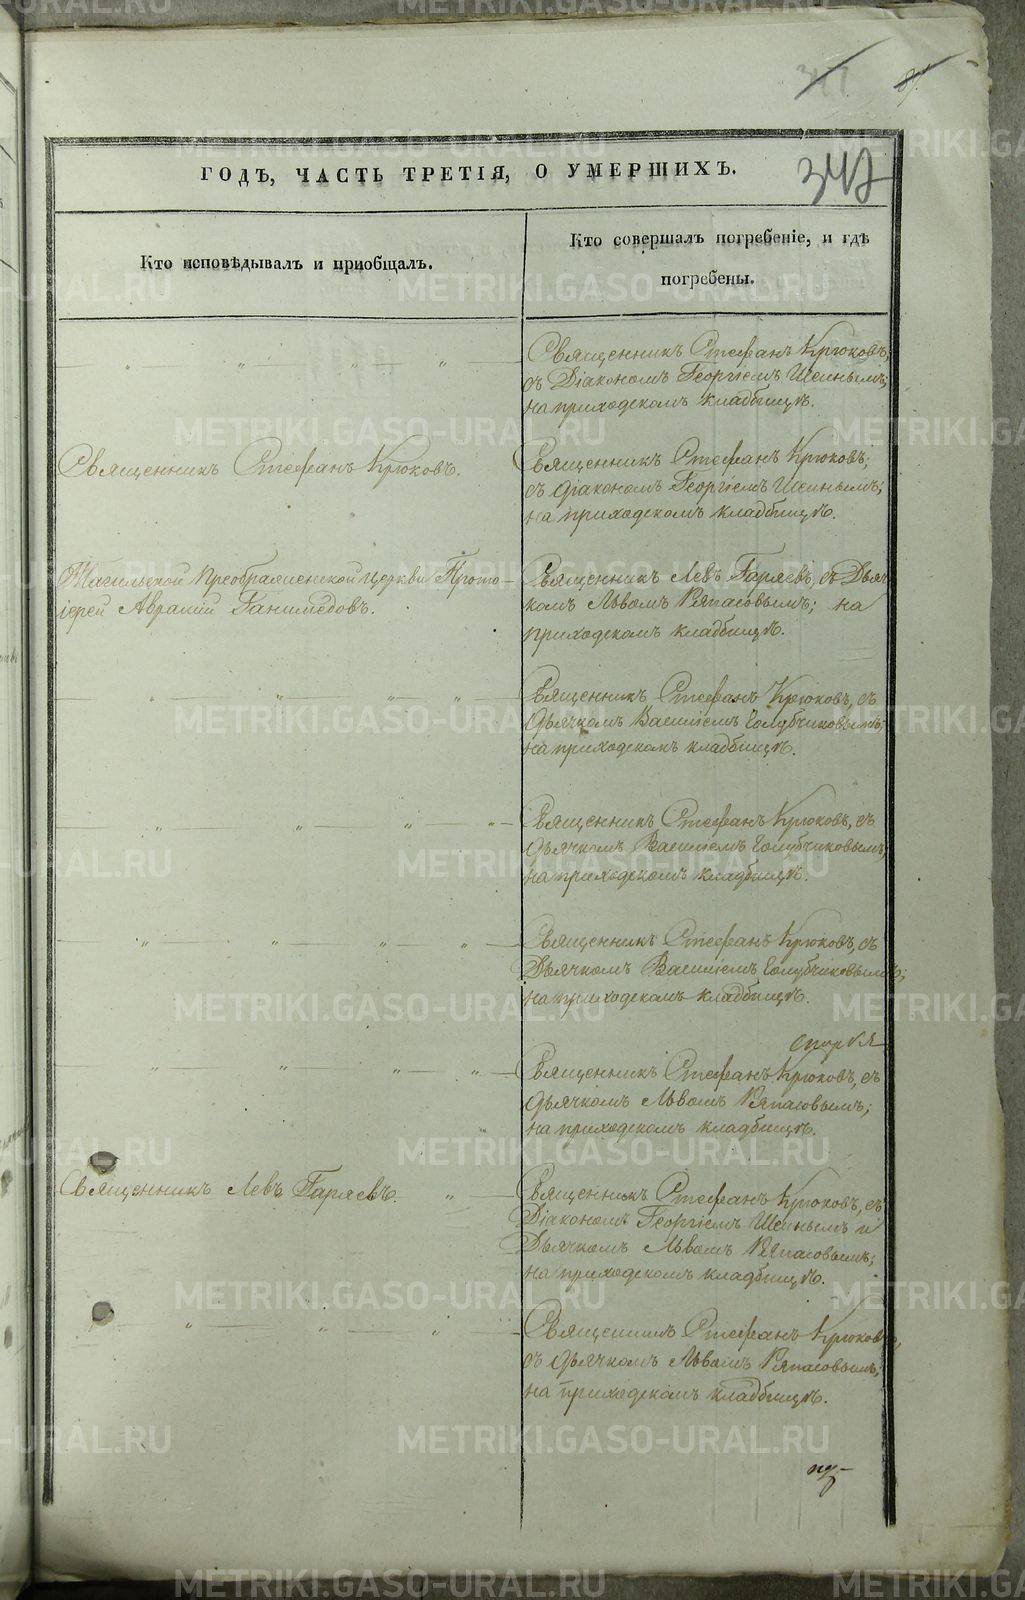 347
ГОДЪ, ЧАСТЬ ТРЕТІЯ, О УМЕРШИХЪ.
Кто исповѣдывалъ и пріобщалъ.
Кто совершалъ погребеніе, и гдѣ
погребены.
Священникъ Стефанъ Крюковъ,
съ Діакономъ Георгіемъ Шеинымъ,
на приходскомъ кладбищѣ.
Священникъ Стефанъ Крюковъ.
Священникъ Стефанъ Крюковъ;
съ діакономъ Георгіемъ Шеинымъ;
на приходскомъ кладбищѣ.
Тагильской Преображенской церкви Прото-
іерей Аврамій Ганимедовъ.
Священникъ Левъ Гаряевъ, съ Дьяч
комъ Львомъ Ряпасовымъ; на
приходскомъ кладбищѣ.
Священникъ Стефанъ Крюковъ, съ
Дьячкомъ Василіемъ Голубчиковымъ;
на приходскомъ кладбищѣ.
Священникъ Стефанъ Крюковъ, съ
дьячкомъ Василіемъ Голубчиковымъ,
на приходскомъ кладбищѣ.
Священникъ Стефанъ Крюковъ, съ
Дьячкомъ Василіемъ Голубчиковымъ;
на приходскомъ кладбищѣ.
Священникъ Стефанъ Крюковъ, съ
дьячкомъ Львомъ Ряпасовымъ;
на приходскомъ кладбищѣ.
Священникъ Левъ Гаряевъ.
Священникъ Стефанъ Крюковъ, съ
Діакономъ Георгіемъ Шеинымъ и
Дьячкомъ Львомъ Ряпасовымъ;
на приходскомъ кладбищѣ.
Священникъ Стефанъ Крюковъ,
съ дьячкомъ Львомъ Ряпасовымъ;
на приходскомъ кладбищѣ.
METRIKI.GASO-URAL.RU